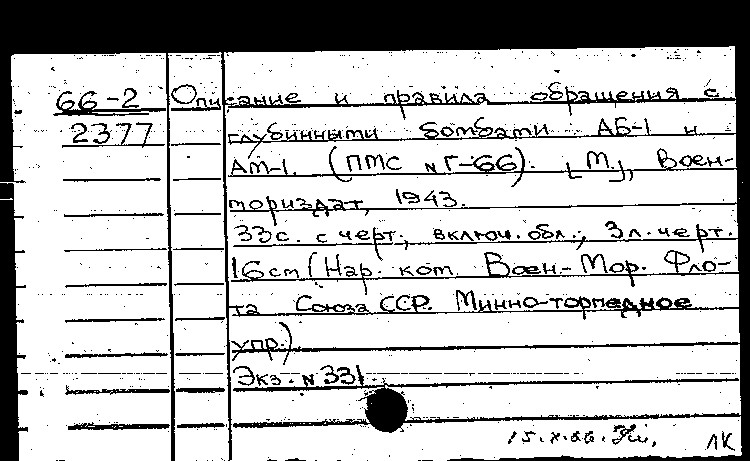 66-2 Описание и правила обращения с
2377 глубинными бомбами АБ-1 и
АМ-1. (ПМС № Г-66). [М.], Воен-
мориздат, 1943.
33с. с черт., включ. обл.; 3л. черт.
16см (Нар. ком. Воен-Мор. Фло-
та Союза ССР. Минно-торпедное
упр.)
Экз. № 331.
15.X.66. ЛК